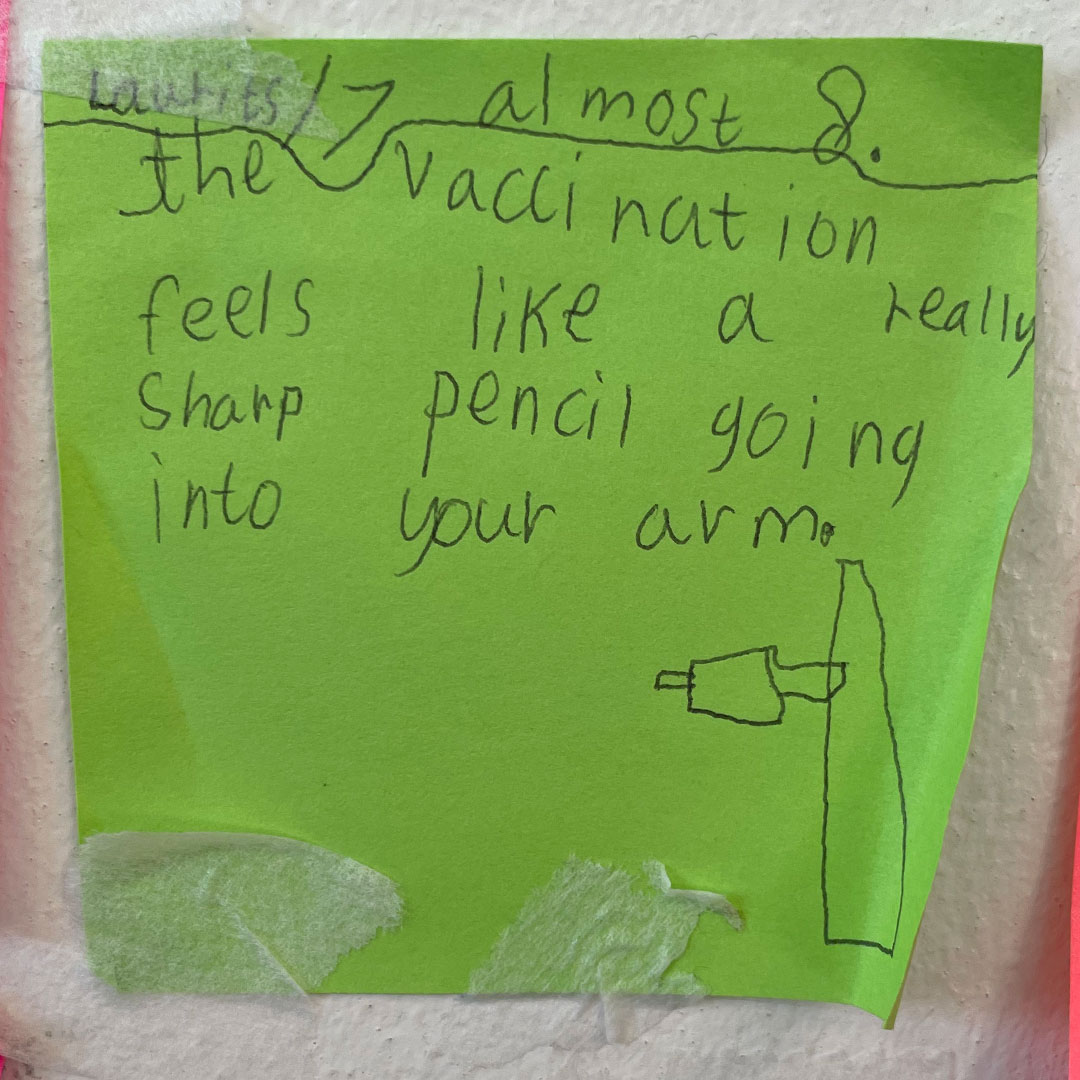 Laurits/7 almost 8.
the Vaccination
feels like a really
Sharp pencil going
into your arm.